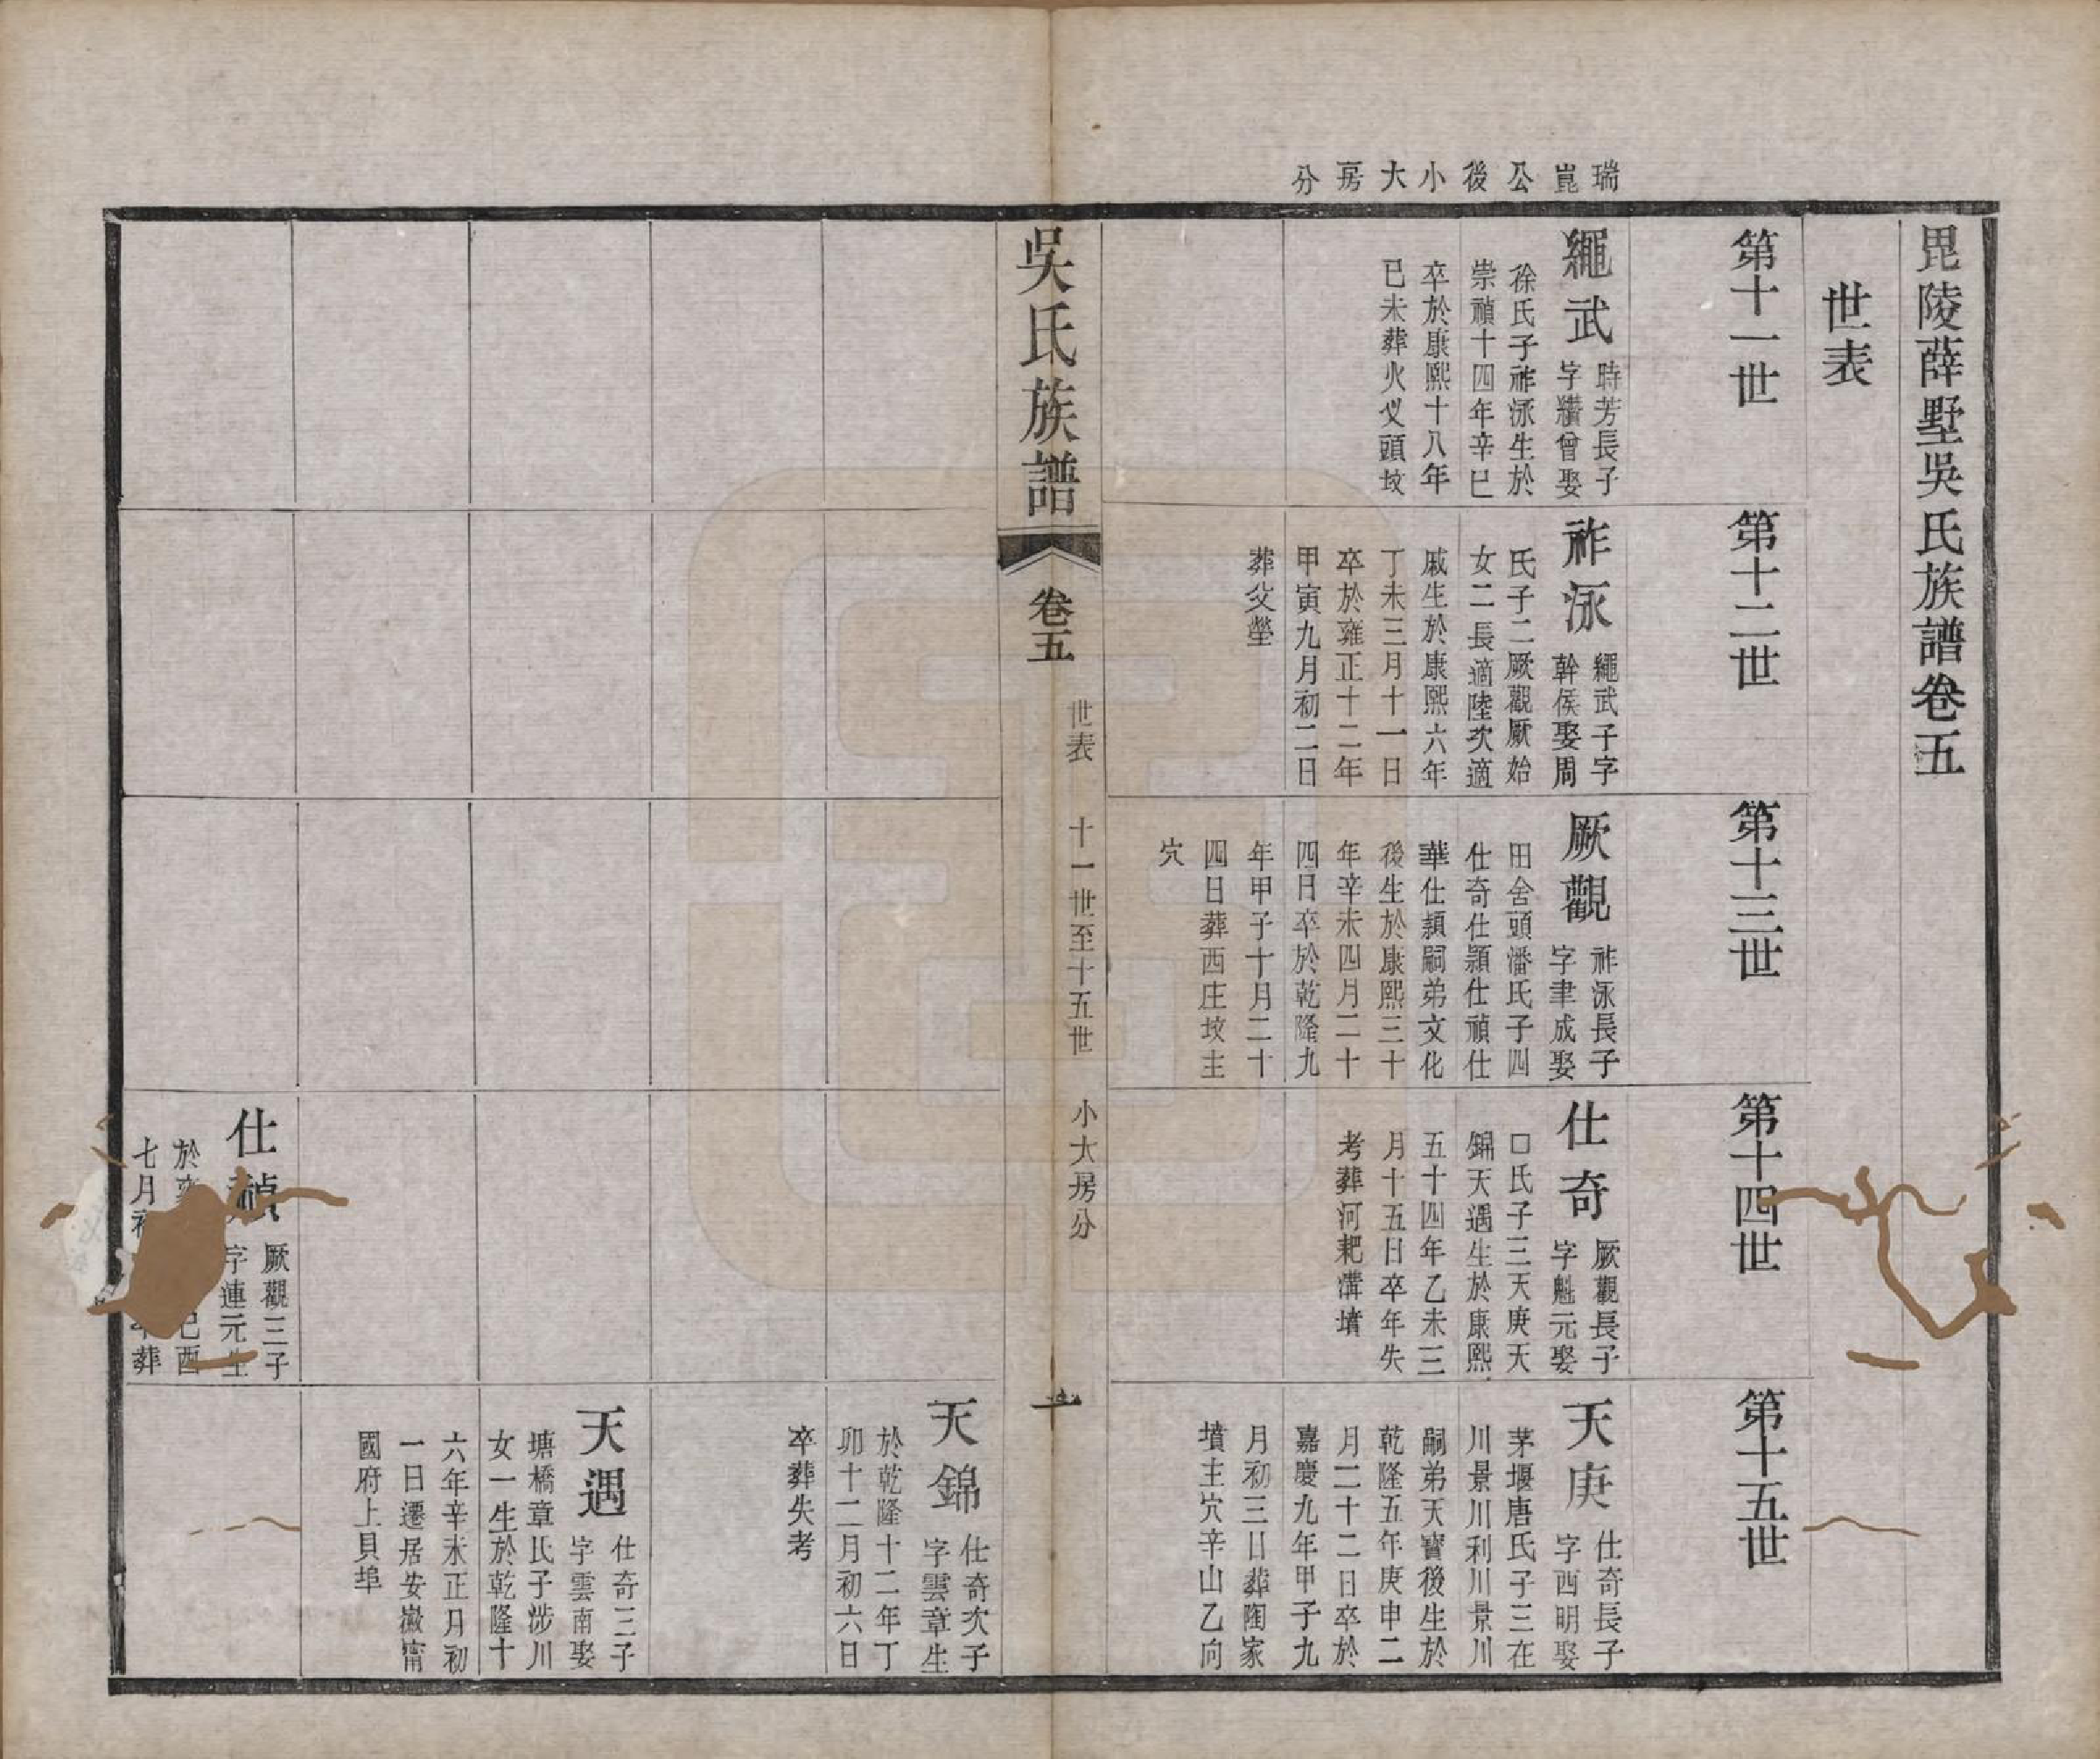 毘陵薛墅吳氏族譜卷五
世表
瑞崑公後小大房分
第十一世
繩武
時芳長子
字纘曾娶
徐氏子祚泳生於
崇禎十四年辛巳
卒於康熙十八年
已未葬火义頭坟
第十二世
祚泳
繩武子字
幹侯娶周
氏子二厥觀厥始
女二長適陸次適
戚生於康熙六年
丁未三月十一日
卒於雍正十二年
甲寅九月初二日
葬父塋
第十三世
厥觀
祚泳長子
字聿成娶
田舍頭潘氏子四
仕奇仕顥仕禎仕
華仕顥嗣弟文化
後生於康熙三十
年辛未四月二十
四日卒於乾隆九
年甲子十月二十
四日葬西庄坟主
穴
第十四世
仕奇
厥觀長子
字魁元娶
口氏子三天庚天
錦天遇生於康熙
五十四年乙未三
月十五日卒年失
考葬河耙溝墳
第十五世
天庚
仕奇長子
字西明娶
茅堰唐氏子三在
川景川利川景川
嗣弟天寶後生於
乾隆五年庚申二
月二十二日卒於
嘉慶九年甲子九
月初三日葬陶家
墳主穴辛山乙向
吳氏族譜
卷五
世表 十一世至十五世 小大房分
一
天錦
仕奇次子
字雲章生
於乾隆十二年丁
卯十二月初六日
卒葬失考
天遇
仕奇三子
字雲南娶
塘橋章氏子涉川
女一生於乾隆十
六年辛未正月初
一日遷居安徽甯
國府上貝埠
仕禎
厥觀三子
字連元生
於 巳酉
七月初 葬